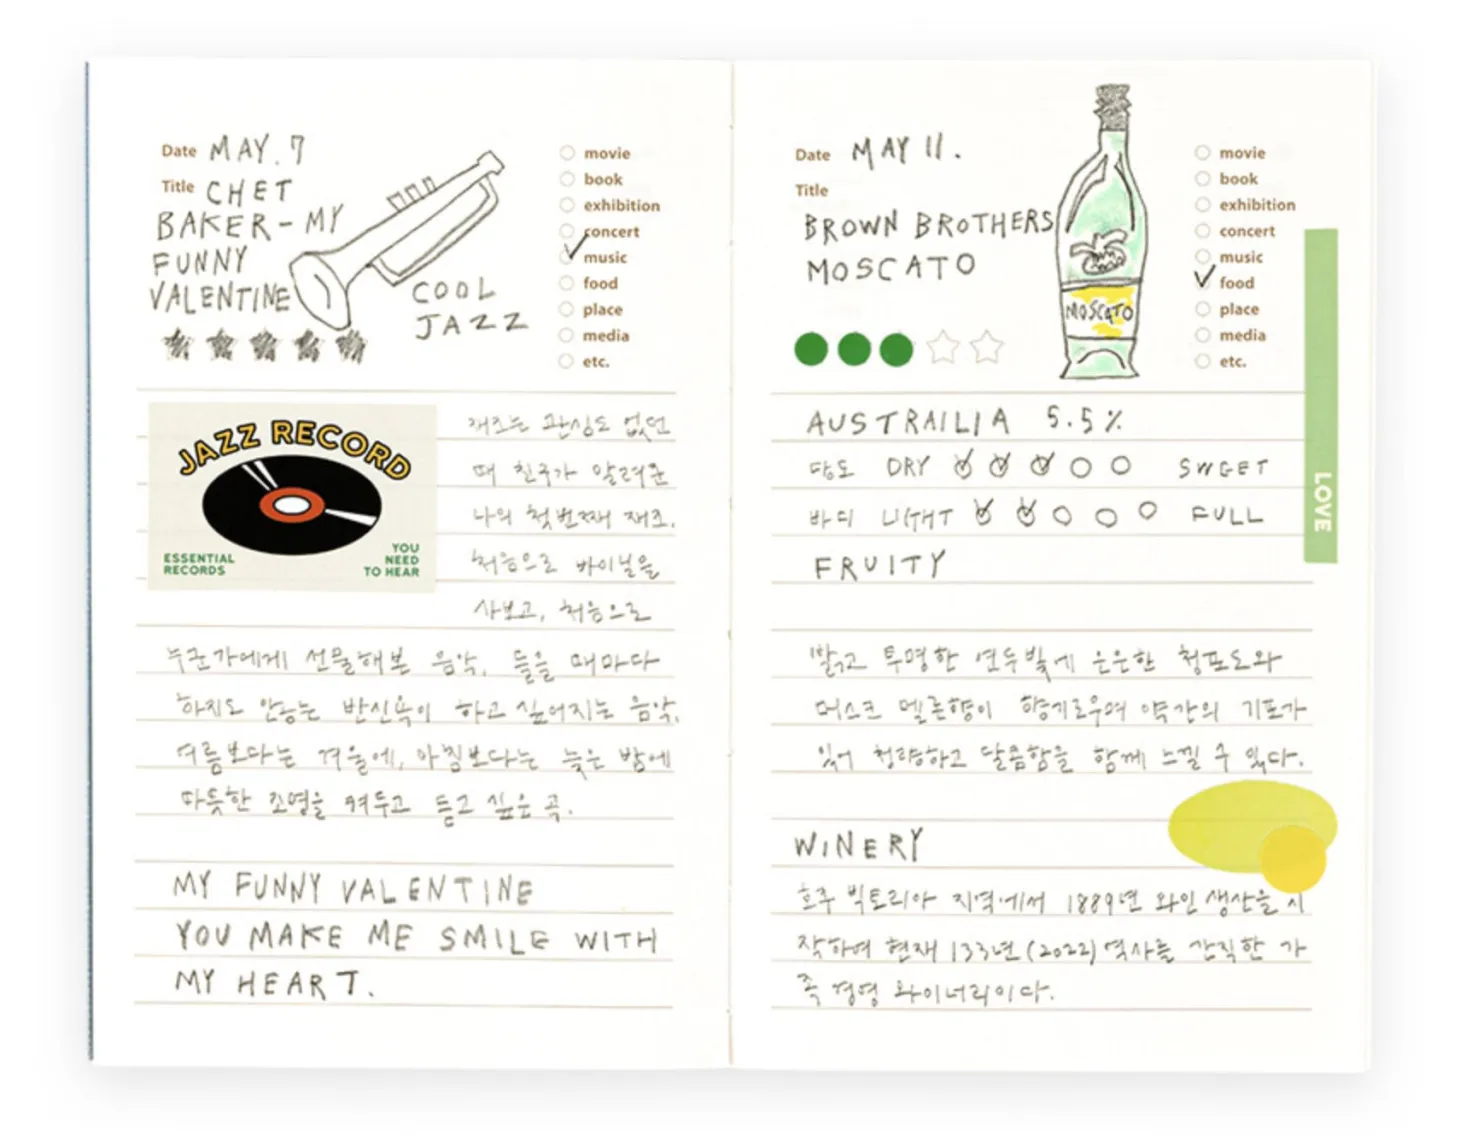 Date MAY. 7
Title CHET
BAKER - MY
FUNNY
VALENTINE
COOL
JAZZ
movie
book
exhibition
concert
music
food
place
media
etc.
JAZZ RECORD
ESSENTIAL
RECORDS
YOU
NEED
TO HEAR
재즈는 관심도 없던
때 친구가 알려준
나의 첫번째 재즈.
처음으로 바이닐을
사보고, 처음으로
누군가에게 선물해본 음악. 들을 때마다
하지도 않는 반신욕이 하고 싶어지는 음악.
여름보다는 겨울에, 아침보다는 늦은 밤에
따듯한 조명을 켜두고 듣고 싶은 곡.
MY FUNNY VALENTINE
YOU MAKE ME SMILE WITH
MY HEART.
Date MAY 11.
Title
BROWN BROTHERS
MOSCATO
MOSCATO
movie
book
exhibition
concert
music
food
place
media
etc.
LOVE
AUSTRAILIA 5.5%
당도 DRY SWEET
바디 LIGHT FULL
FRUITY
밝고 투명한 연두빛에 은은한 청포도와
머스크 멜론향이 향기로우며 약간의 기포가
있어 청량하고 달콤함을 함께 느낄 수 있다.
WINERY
호주 빅토리아 지역에서 1889년 와인 생산을 시
작하여 현재 133년(2022) 역사를 간직한 가
족 경영 와이너리이다.